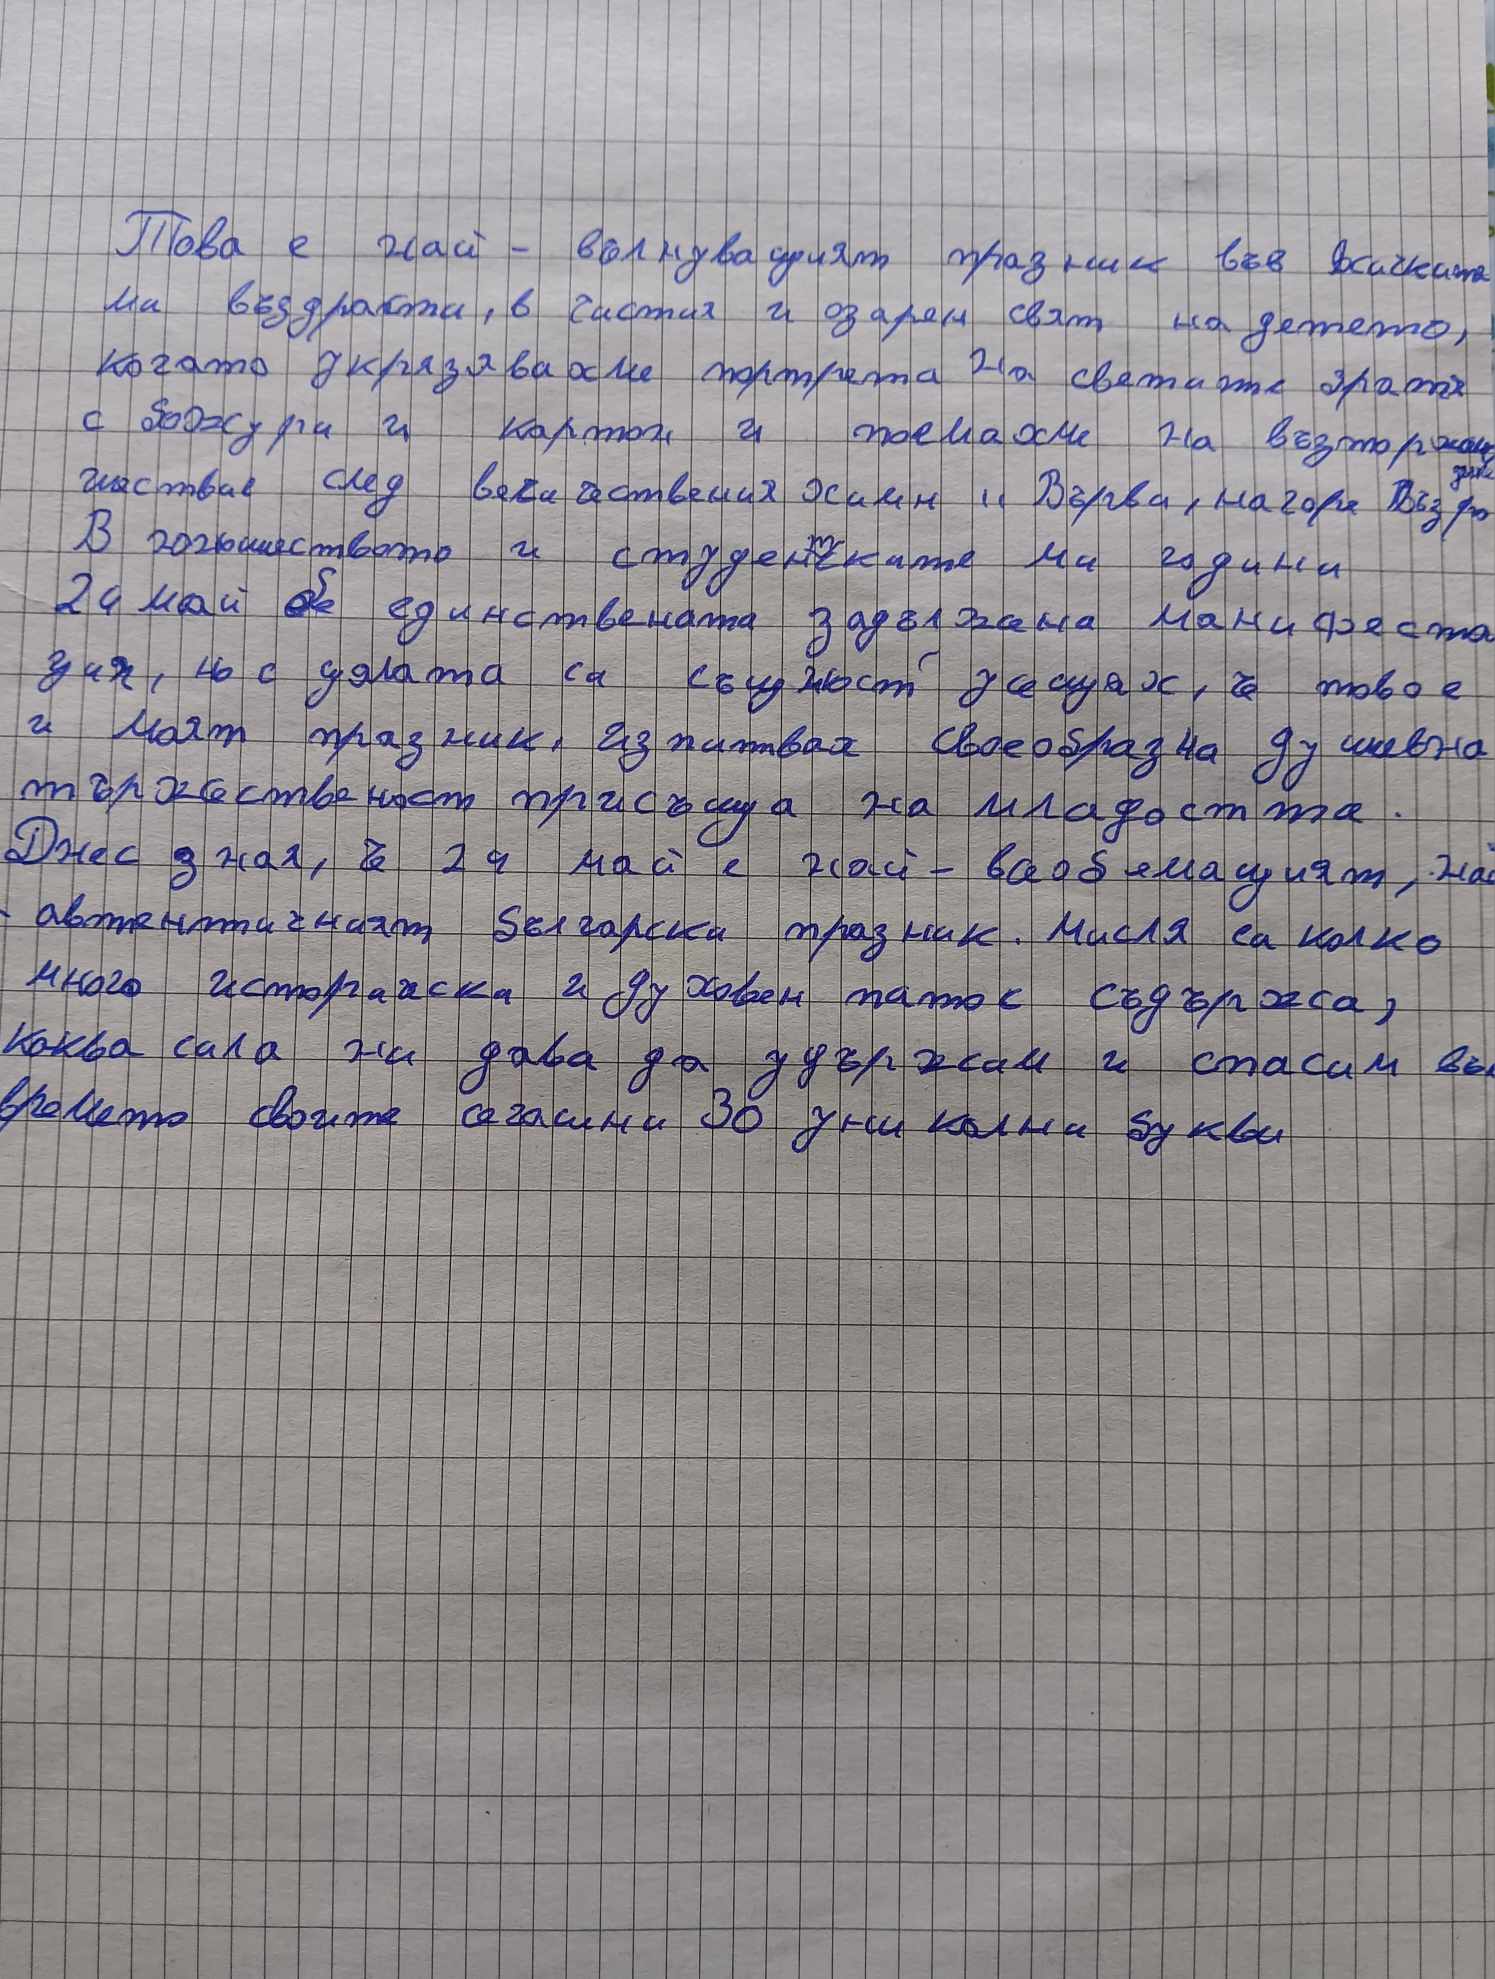 Това е най - вълнуващият празник във всичките
ми въздрасти, в чистия и озарен свят на детето,
когато укразявахме портрета на светите братя
с божури и картон и поемахме на възторжено
шествие след величествения химн „ Върви, народе Възро
дени
В юношеството и студентските ми години
24 май бе единствената задължена манифеста
зия, но с цялата си същност усещах, че това е
и моят празник, изпитвах своеобразна душевна
тържественост присъща на младостта.
Днес зная, че 24 май е най - всеобемащият, най
- автентичният български празник. Мисля си колко
много историческа и духовен паток съдържа,
каква сила ни дава да удържим и спасим във
времето своите сегашни 30 уникални букви